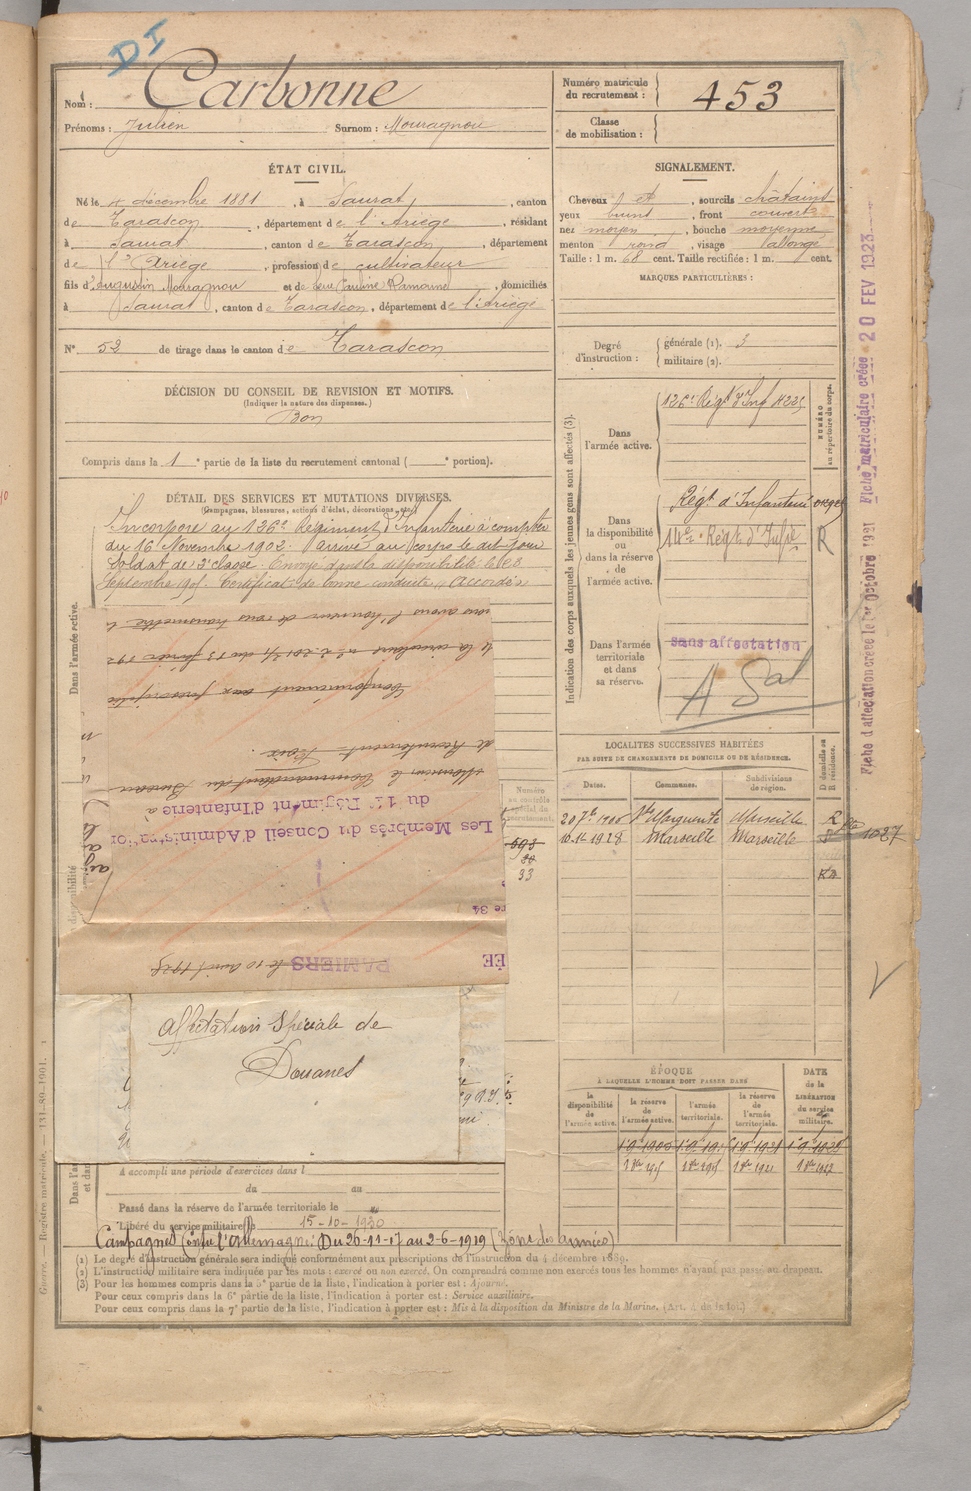 DI
Nom : Carbonne
Prénoms : Julien Surnom : Mouragnou
Numéro matricule du recrutement : 453
Classe de mobilisation :
ÉTAT CIVIL.
Né le 4 décembre 1881, à Saurat, canton
de Tarascon, département de l'Ariège, résidant
à Saurat, canton de Tarascon, département
de l'Ariège, profession de cultivateur
fils d'Augustin Mouragnou et de Pauline Ramoine, domiciliés
à Saurat, canton de Tarascon, département de l'Ariège
N° 52 de tirage dans le canton de Tarascon
DÉCISION DU CONSEIL DE REVISION ET MOTIFS.
(Indiquer la nature des dispenses.)
Bon
Compris dans la 1e partie de la liste du recrutement cantonal ( e portion).
SIGNALEMENT.
Cheveux et, sourcils châtains
yeux bruns, front couvert
nez moyen, bouche moyenne
menton rond, visage allongé
Taille : 1 m. 68 cent. Taille rectifiée : 1 m. cent.
MARQUES PARTICULIÈRES :
Degré d'instruction : générale (1). 3
militaire (2).
DÉTAIL DES SERVICES ET MUTATIONS DIVERSES.
(Campagnes, blessures, actions d'éclat, décorations, etc.)
Incorporé au 126e Régiment d'Infanterie à compter
du 16 Novembre 1902. Arrivé au corps le dit jour
Soldat de 2e classe. Envoyé dans la disponibilité le
Septembre 1905. Certificat de bonne conduite "Accordé"
Dans l'armée active.
Indication des corps auxquels les jeunes gens sont affectés (3).
NUMÉRO au répertoire du corps.
Dans l'armée active.
126e Régt d'Inf
Dans la disponibilité ou dans la réserve de l'armée active.
Régt d'Infanterie
14e Régt d'Infie R
Dans l'armée territoriale et dans sa réserve.
sans affectation
Fiche d'affectation créée le 1er Octobre 1931 Fiche matriculaire créée 20 FEV 1923
vous avons l'honneur de vous transmettre
de la circulaire du 13 février 192
Conformément aux prescriptions
de Recrutement Foix
Monsieur le Commandant du Bureau
du 14e Régiment d'Infanterie à
Les Membres du Conseil d'Administration
34
PAMIERS le 10 avril
ÉE
Affectation Spéciale de
Douanes
Numéro au contrôle spécial du recrutement.
33
LOCALITÉS SUCCESSIVES HABITÉES
PAR SUITE DE CHANGEMENTS DE DOMICILE OU DE RÉSIDENCE.
Dates. Communes. Subdivisions de région. D domicile ou R résidence.
Ste Marguerite Marseille R
1928 Marseille Marseille 1027
ÉPOQUE
À LAQUELLE L'HOMME DOIT PASSER DANS
la disponibilité de l'armée active. la réserve de l'armée active. l'armée territoriale. la réserve de l'armée territoriale.
DATE de la LIBÉRATION du service militaire.
A accompli une période d'exercices dans l
du au
Passé dans la réserve de l'armée territoriale le
Libéré du service militaire le 15-10-1930
Campagnes contre l'Allemagne : Du 26-11-17 au 2-6-1919 (Zône des armées)
(1) Le degré d'instruction générale sera indiqué conformément aux prescriptions de l'instruction du 4 décembre 1889.
(2) L'instruction militaire sera indiquée par les mots : exercé ou non exercé. On comprendra comme non exercés tous les hommes n'ayant pas passé au drapeau.
(3) Pour les hommes compris dans la 5e partie de la liste, l'indication à porter est : Ajourné.
Pour ceux compris dans la 6e partie de la liste, l'indication à porter est : Service auxiliaire.
Pour ceux compris dans la 7e partie de la liste, l'indication à porter est : Mis à la disposition du Ministre de la Marine. (Art. 4 de la loi.)
Guerre. — Registre matricule. — 131-89-1901.